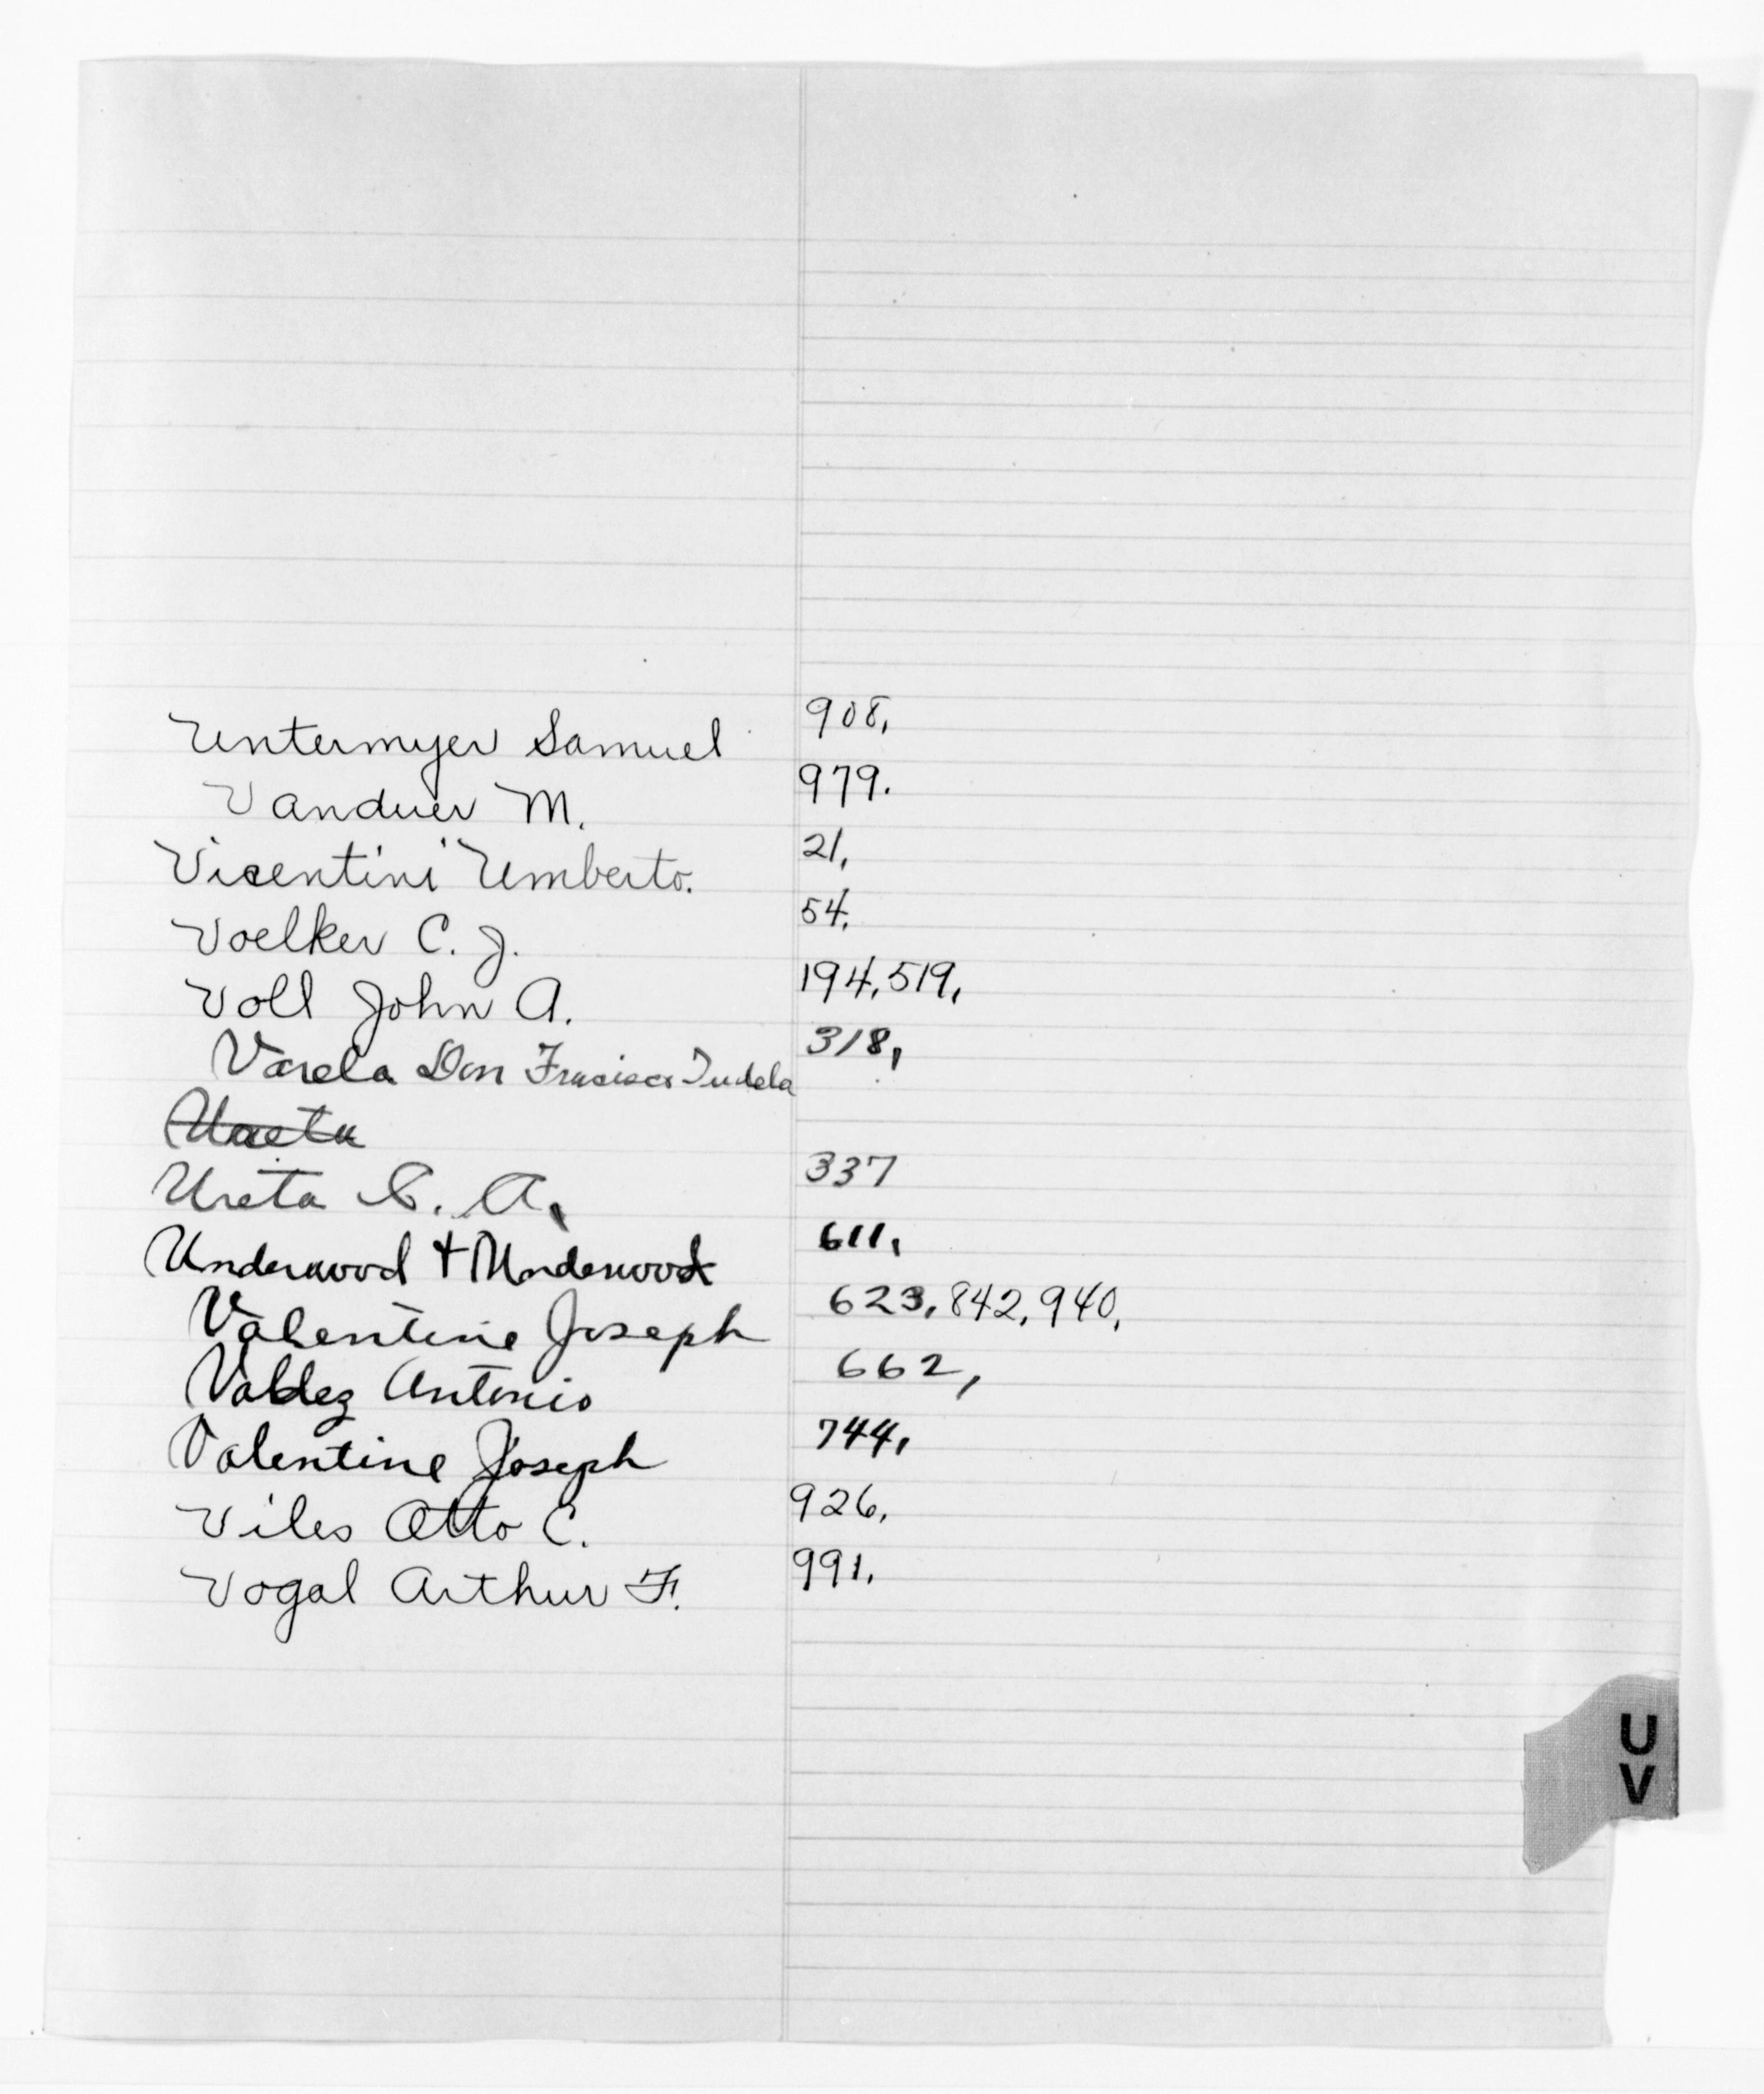 Untermyer Samuel 908,
Vanduer M. 979.
Vicentini Umberto. 21,
Voelker C. J. 54.
Voll John A. 194, 519,
Varela Don Fracisco Tudela 318,
Ureta 337
Underwood + Underwood 611,
Valentine Joseph 623, 842, 940,
Valdez Antonio 662,
Valentine Joseph 744,
Viles Otto C. 926,
Vogal Arthur F. 991.
U
V